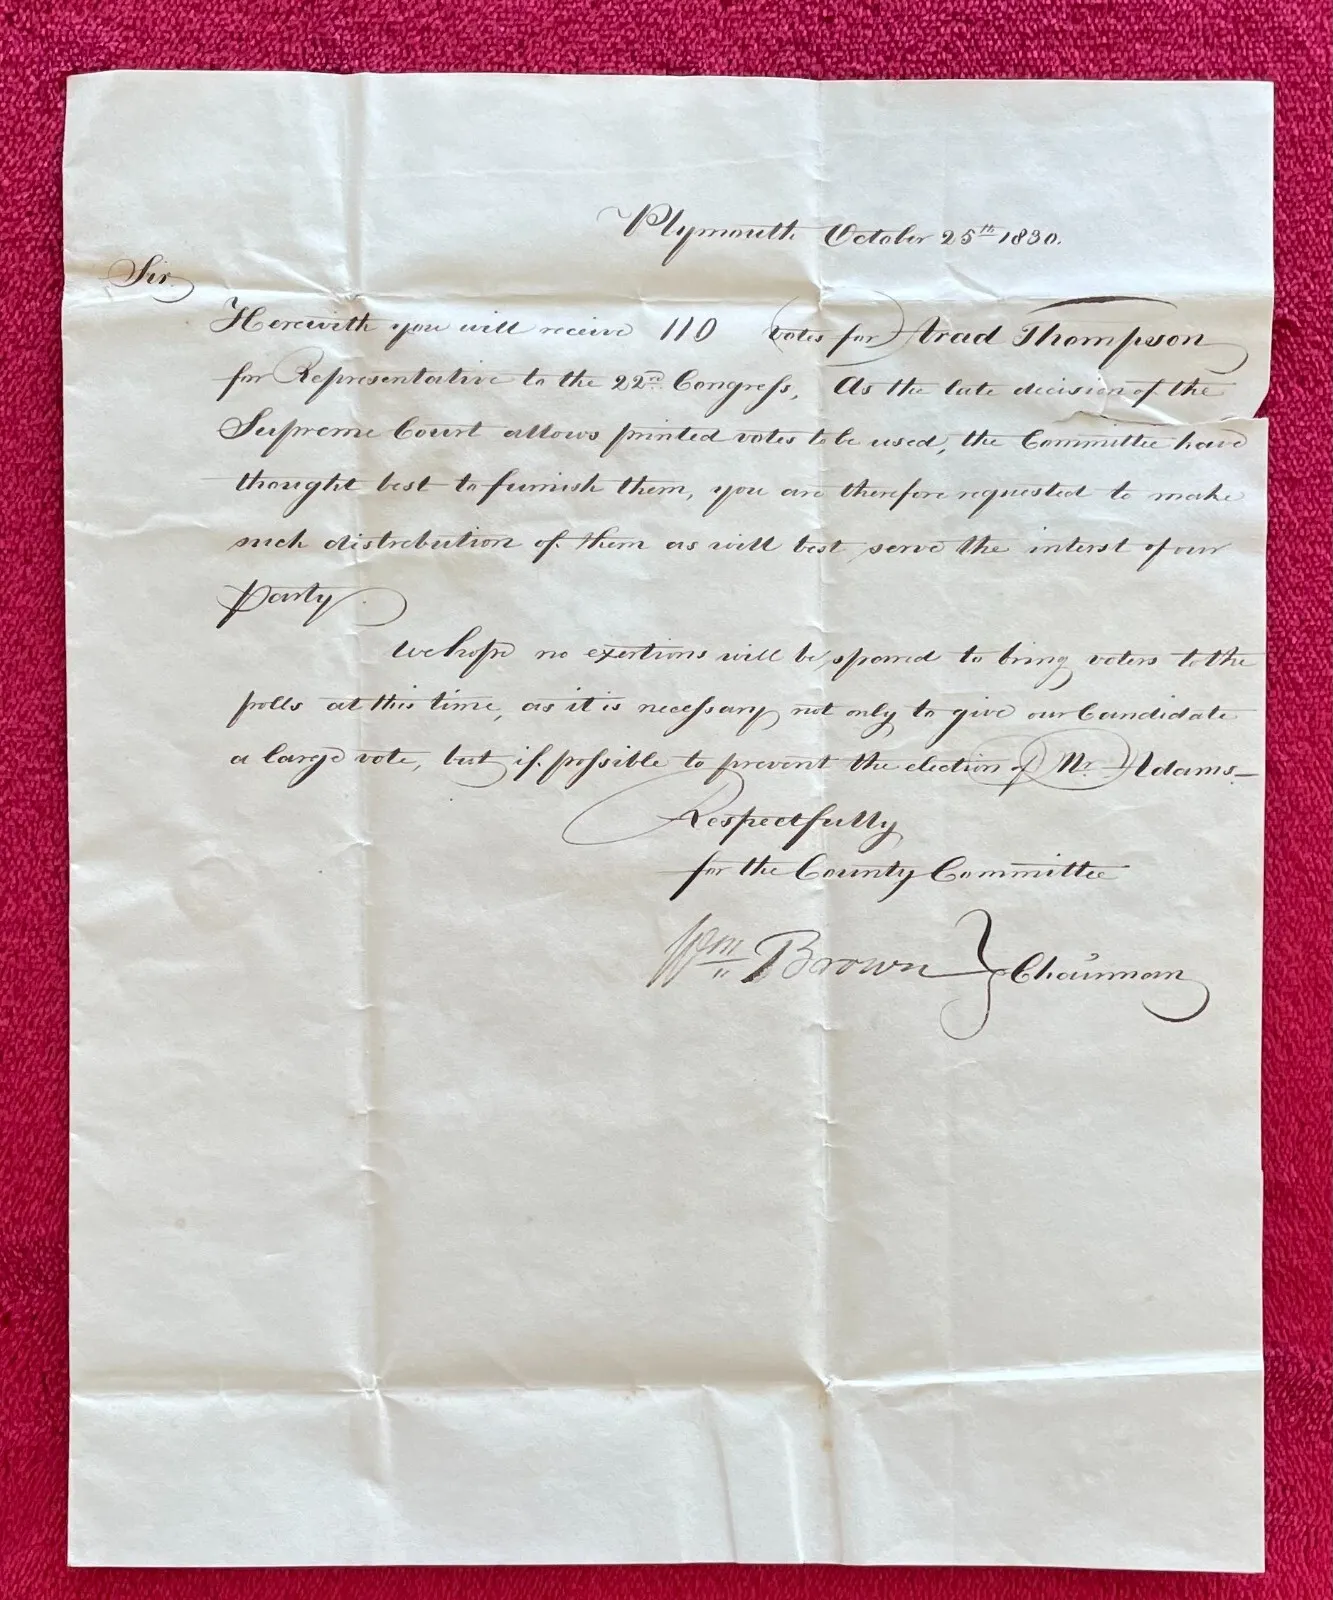 Plymouth October 25th 1830.
Sir.
Herewith you will receive 110 votes for Arad Thompson
for Representative to the 22nd Congress. As the late decision of the
Supreme Court allows printed votes to be used, the Committee have
thought best to furnish them, you are therefore requested to make
such distrebution of them as will best serve the interst of our
party.
We hope no exertions will be spared to bring voters to the
polls at this time, as it is necessary not only to give our Candidate
a large vote, but if possible to prevent the election of Mr Adams—
Respectfully
for the County Committee
Wm Brown } Chairman